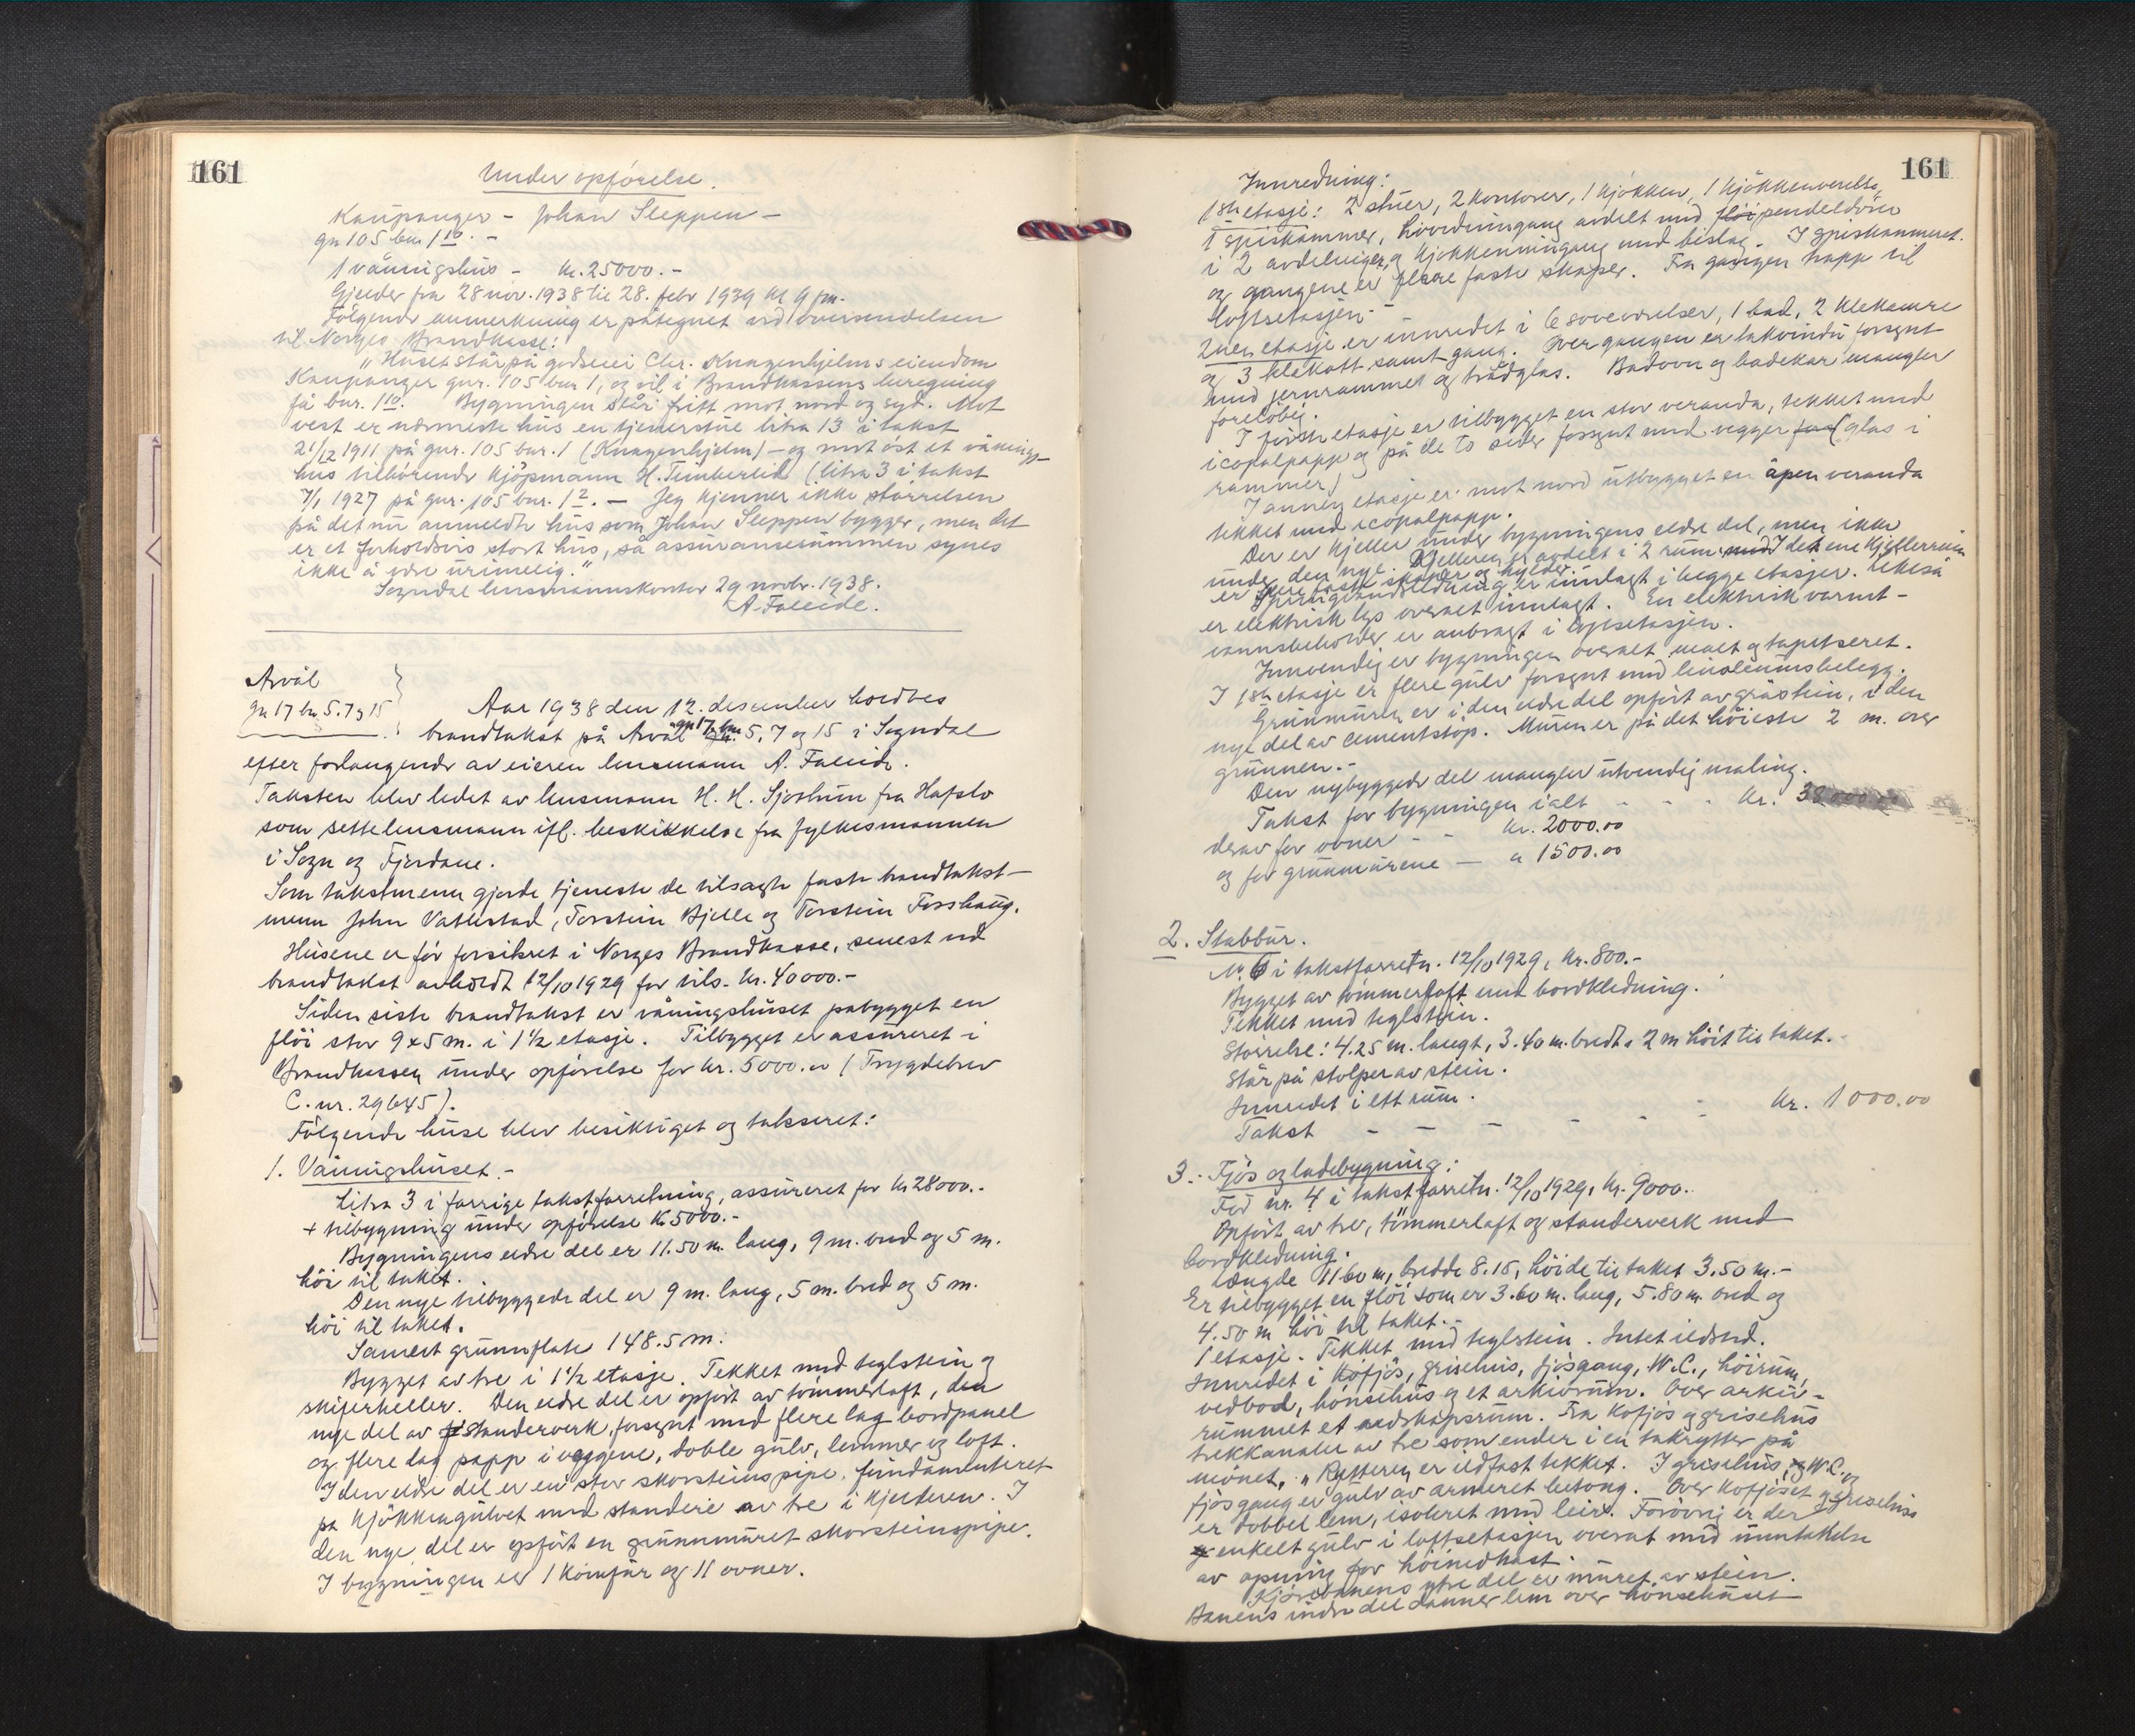 161
Under opførelse.
Kaupanger - Johan Sleppen -
gn 105 bn 1 10. -
1 våningshus - kr. 25000.-
Gjelder fra 28 nov. 1938 til 28. febr 1939 kl 9 fm.
Følgende anmerkning er påtegnet ved oversendelsen
til Norges Brandkasse:
"Huset står på godseier Chr. Knagenhjelms eiendom
Kaupanger gnr. 105 bnr 1, og vil i Brandkassens beregning
få bnr. 1 10. Bygningen står fritt mot nord og syd. Mot
vest er nærmeste hus en tjenerstue litra 13 i takst
21/12 1911 på gnr. 105 bnr. 1 (Knagenhjelm) - og mot øst et vånings-
hus tilhørende kjøpmann H. Timberlid (litra 3 i takst
7/1 1927 på gnr. 105 bnr. 1 2. - Jeg kjenner ikke størrelsen
på det nu anmeldte hus som Johan Sleppen bygger, men det
er et forholdsvis stort hus, så assuransesummen synes
ikke å være urimelig."
Sogndal lensmannskontor 29 novbr. 1938.
A. Faleide.
Arvål
gn 17 bn 5.7 og 15
Aar 1938 den 12. desember holdtes
brandtakst på Arvål gn 17, bnr. 5, 7 og 15 i Sogndal
efter forlangende av eieren lensmann A. Faleide.
Taksten blev ledet av lensmann H. H. Sjøtun fra Hafslo
som settelensmann ifl. beskikkelse fra fylkesmannen
i Sogn og Fjordane.
Som takstmenn gjorde tjeneste de tilsagte faste brandtakst-
menn John Vatlestad, Torstein Bjelle og Torstein Fosshaug.
Husene er før forsikret i Norges Brandkasse, senest ved
brandtakst avholdt 12/10 1929 for tils. kr. 40000.-
Siden siste brandtakst er våningshuset påbygget en
fløi stor 9x5 m. i 1½ etasje. Tilbygget er assureret i
Brandkassen under opførelse for kr. 5000.00 (Trygdebrev
C. nr. 29645).
Følgende huse blev besiktiget og taksseret:
1. Våningshuset.-
Litra 3 i forrige takstforretning, assureret for kr 28000.-
+ tilbygning under opførelse kr 5000.-
Bygningens eldre del er 11.50 m. lang, 9 m. bred og 5 m.
høi til taket.
Den nye tilbyggede del er 9 m. lang, 5 m. bred og 5 m.
høi til taket.
Samlet grunnflate 148.5 m.
Bygget av tre i 1½ etasje. Tekket med teglstein og
skiferheller. Den eldre del er opført av tømmerlaft, den
nye del av standerverk, forsynt med flere lag bordpanel
og flere lag papp i veggene, doble gulv, lemmer og loft.
I den eldre del er en stor skorsteinspipe, fundamenteret
på kjøkkengulvet med standere av tre i kjelderen. I
den nye del er opført en grunnmuret skorsteinspipe.
I bygningen er 1 komfur og 11 ovner.
161
Innredning:
1ste etasje: 2 stuer, 2 kontorer, 1 kjøkken, 1 kjøkkenværelse,
1 spiskammer, hovedinngang avdelt med pendeldører
i 2 avdelinger, og kjøkkeninngang med bislag. I spiskammeret
og gangene er flere faste skaper. Fra gangen trapp til
loftsetasjen.-
2nen etasje er innredet i 6 soveværelser, 1 bad, 2 klekamre
og 3 klekott samt gang. Over gangen er takvindu forsynt
med jernrammer og trådglas. Badovn og badekar mangler
foreløbig.
I første etasje er tilbygget en stor veranda, tekket med
icopalpapp og på de to sider forsynt med vegger (glas i
rammer)
I annen etasje er mot nord utbygget en åpen veranda
tekket med icopalpapp.
Der er kjeller under bygningens eldre del, men ikke
under den nye. Kjelleren er avdelt i 2 rum. I det ene kjellerrum
er flere faste skaper og hylder.
Springvandsledning er innlagt i begge etasjer. Likeså
er elektrisk lys overalt innlagt. En elektrisk varmt-
vannsbeholder er anbragt i loftsetasjen.
Innvendig er bygningen overalt malt og tapetseret.
I 1ste etasje er flere gulv forsynt med linoleumsbelegg.
Grunnmuren er i den eldre del opført av gråstein, i den
nye del av cementstøp. Muren er på det høieste 2 m. over
grunnen.-
Den nybyggede del mangler utvendig maling.
Takst for bygningen ialt - - - kr. 38000.00
derav for ovner - - kr. 2000.00
og for grunnmurene - " 1500.00
2. Stabbur.
Nr. 6 i takstforretn. 12/10 1929, kr. 800.-
Bygget av tømmerlaft med bordkledning.
Tekket med teglstein.
Størrelse: 4.25 m. langt, 3.40 m. bredt, 2 m høit til taket.-
Står på stolper av stein.
Innredet i ett rum.
Takst - - - - - - kr. 1000.00
3. Fjøs og ladebygning:
Før nr. 4 i takstforretn. 12/10 1929, kr. 9000.
Opført av tre, tømmerlaft og standerverk med
bordkledning.
Længde 11.60 m, bredde 8.15, høide til taket 3.50 m.-
Er tilbygget en fløi som er 3.60 m. lang, 5.80 m. bred og
4.50 m høi til taket.-
1 etasje. Tekket med teglstein. Intet ildsted.
Innredet i kofjøs, grisehus, fjøsgang, W.C., høirum,
vedbod, hønsehus og et arkivrum. Over arkiv-
rummet et redskapsrum. Fra kofjøs og grisehus
trekkanaler av tre som ender i en takrytter på
mønet. Rytteren er ildfast tekket. I grisehus, W.C. og
fjøsgang er gulv av armeret betong. Over kofjøset og grisehus
er dobbel lem, isoleret med leire. Forøvrig er der
enkelt gulv i loftsetasjen overalt med unntakelse
av åpning for høinedkast.
Kjørebanens ytre del er muret av stein.
Banens indre del danner lem over hønsehuset